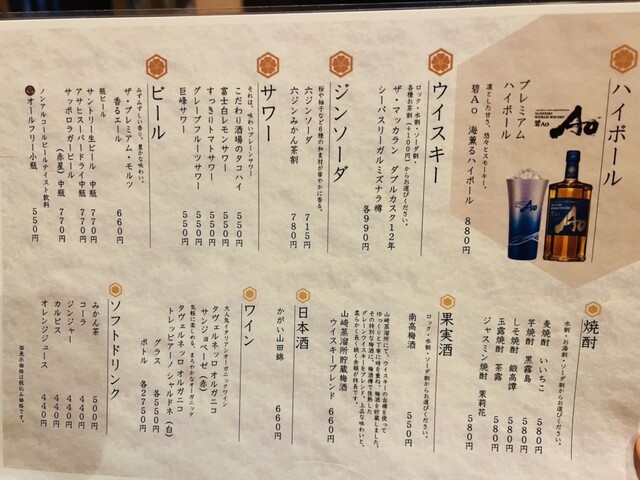 ハイボール
SUNTORY
WORLD WHISKY
碧Ao
Ao
プレミアム
ハイボール
凛とした甘さ、悠々とスモーキー。
碧Ao 海薫るハイボール 880円
ウイスキー
ロック・水割・ソーダ割・
各種お茶割(+100円)からお選びください。
ザ・マッカラン ダブルカスク12年
シーバスリーガルミズナラ樽
各990円
ジンソーダ
桜や柚子など6種の和素材が華やかに香る。
六ジンソーダ 715円
六ジンみかん茶割 780円
サワー
それは、味わいプリーンサワー。
こだわり酒場のタコハイ 550円
富士白レモンサワー 550円
すっきりトマトサワー 550円
グレープフルーツサワー 550円
巨峰サワー 550円
ビール
みずみずしい香り、豊かな味わい。
ザ・プレミアム・モルツ
香るエール 660円
瓶ビール
サントリー生ビール 中瓶 770円
アサヒスーパードライ 中瓶 770円
サッポロラガービール(赤星) 中瓶 770円
ノンアルコールビールテイスト飲料
オールフリー小瓶 550円
焼酎
水割・お湯割・ソーダ割から
お選びください。
麦焼酎 いいちこ 580円
芋焼酎 黒霧島 580円
しそ焼酎 鍛高譚 580円
玉露焼酎 茶露 580円
ジャスミン焼酎 茉莉花 580円
果実酒
ロック・水割・ソーダ割からお選びください。
南高梅酒 550円
山崎蒸溜所貯蔵梅酒
ウイスキーブレンド 660円
日本酒
かがい山田錦 660円
ワイン
大人気イタリアンオーガニックワイン
タヴェルネッロ オルガニコ
サンジョベーゼ(赤)
気軽に楽しめる、まろやかな味わい。
タヴェルネッロ オルガニコ
トレッビアーノ シャルドネ(白)
グラス 各550円
ボトル 各2750円
ソフトドリンク
みかん茶 500円
コーラ 440円
ジンジャー 440円
カルピス 440円
オレンジジュース 440円
※表示価格は税込み価格です。